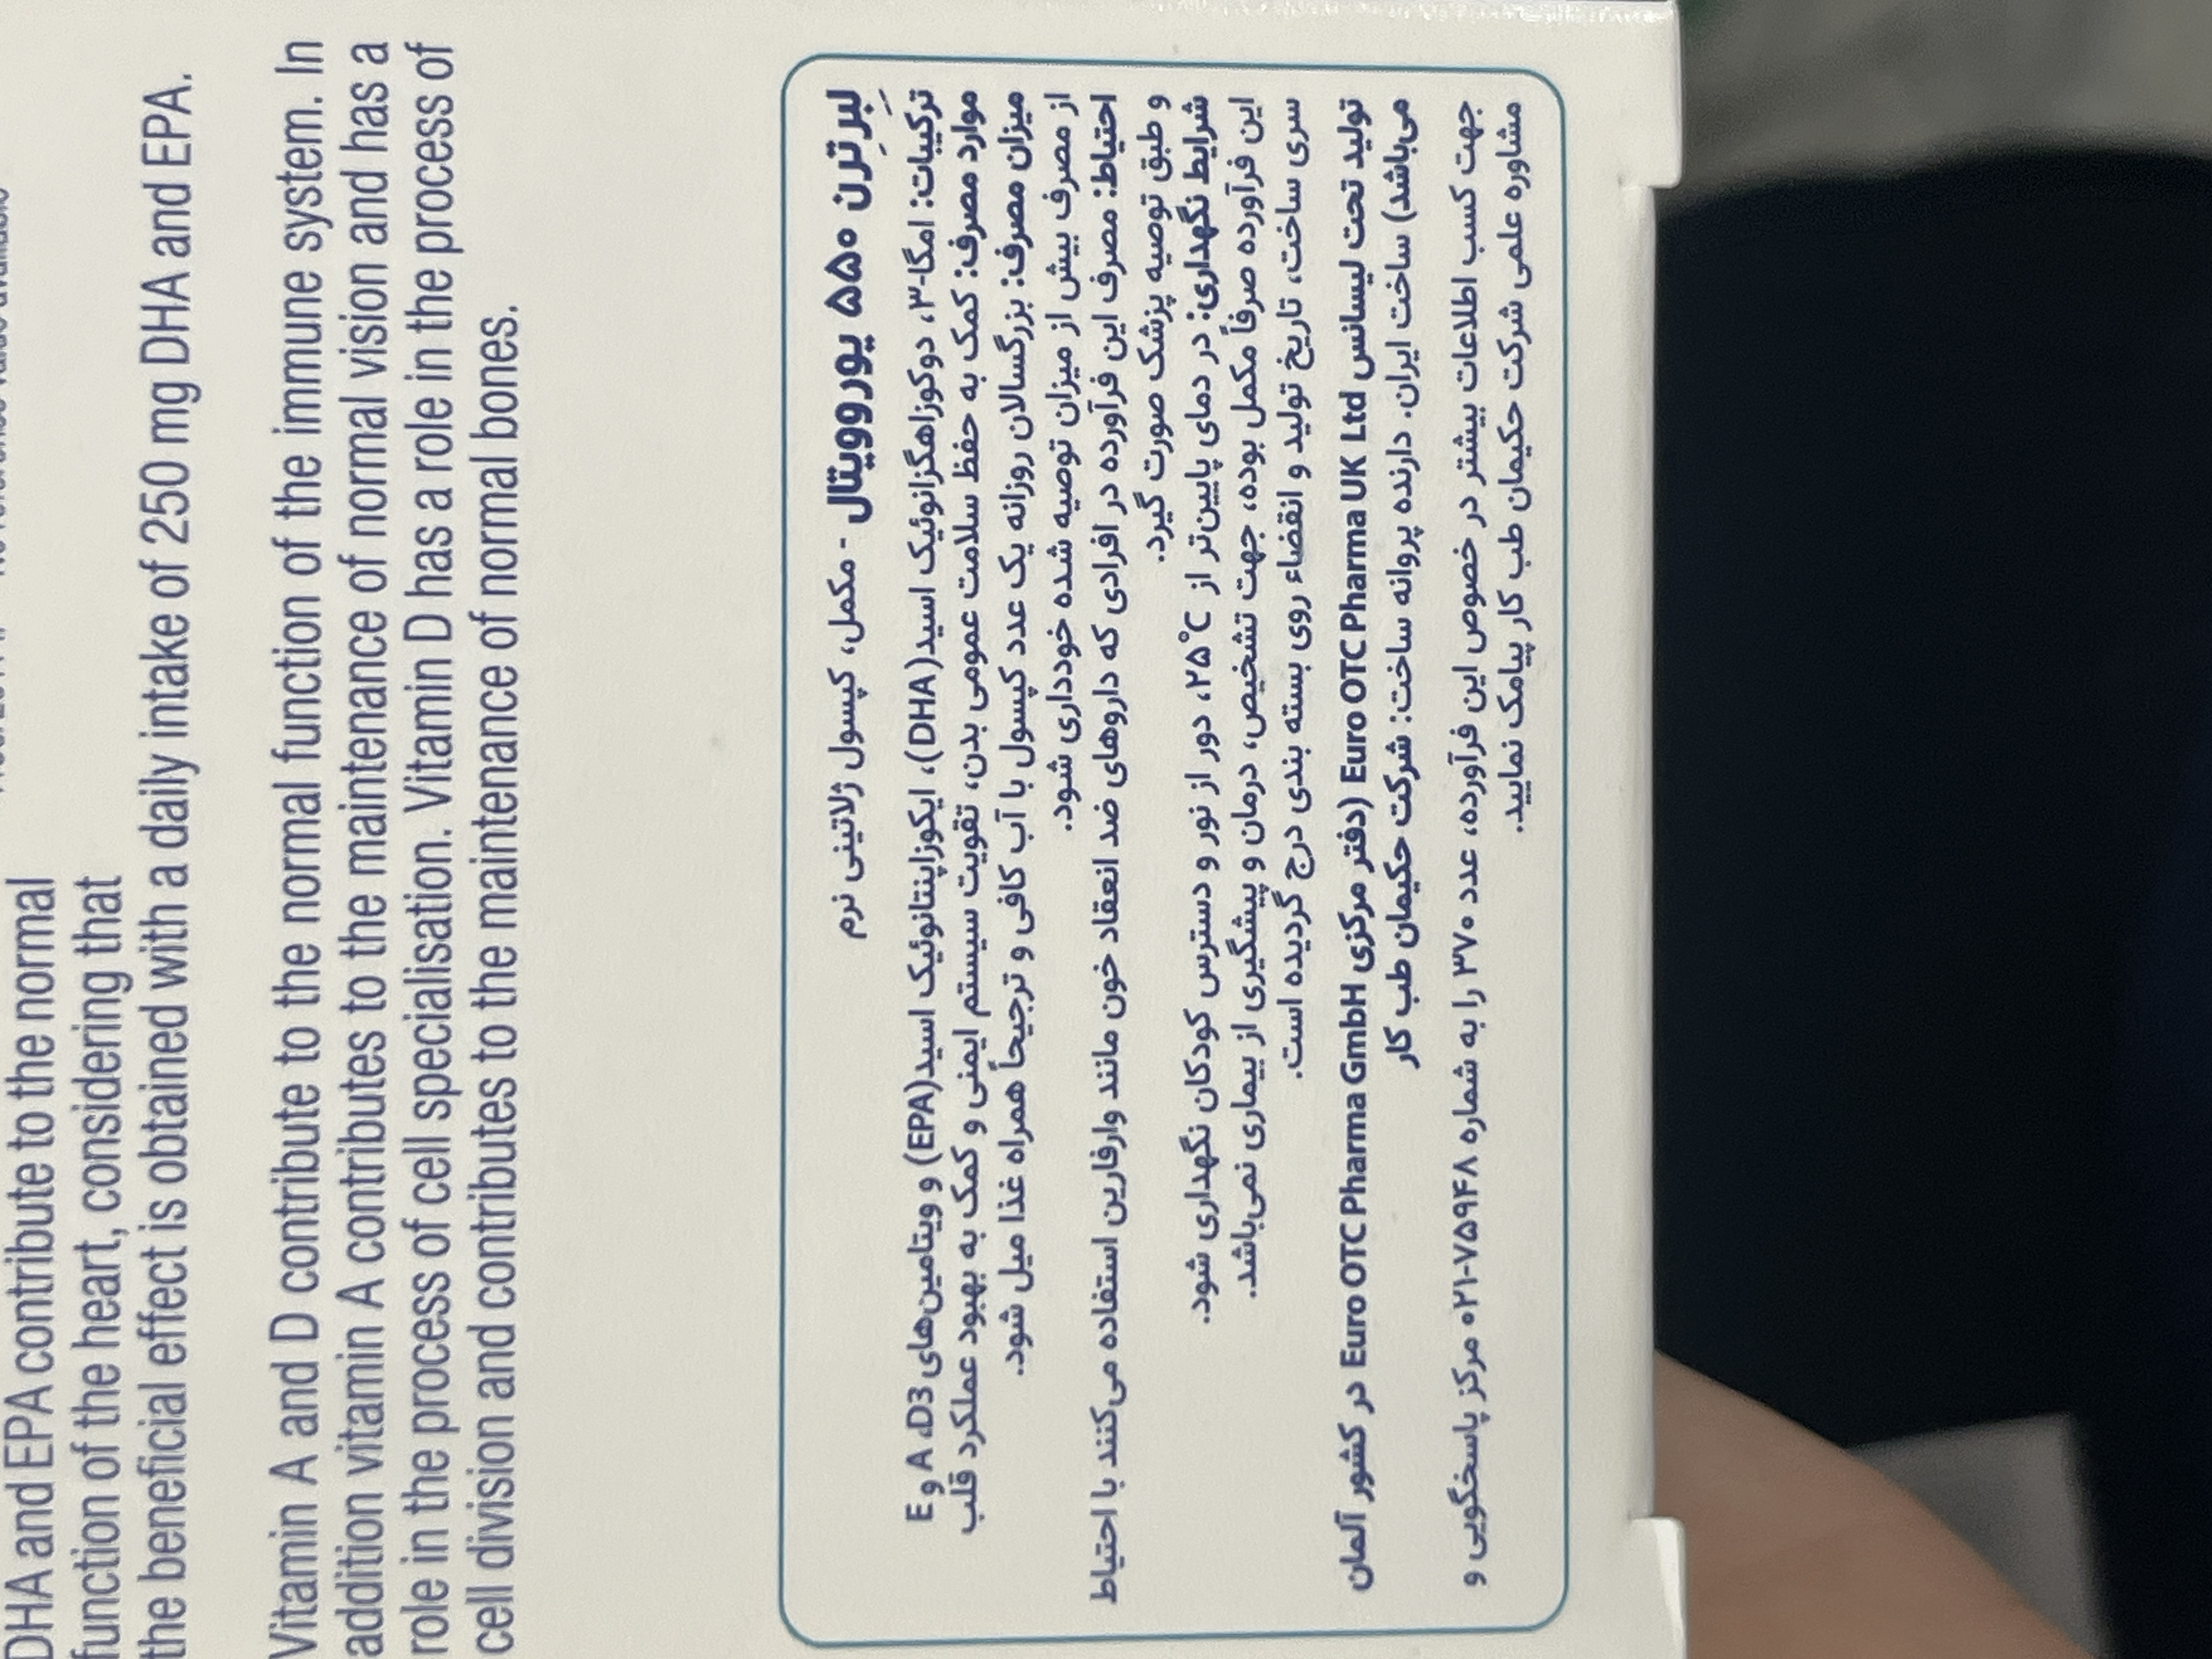 DHA and EPA contribute to the normal
function of the heart, considering that
the beneficial effect is obtained with a daily intake of 250 mg DHA and EPA.
Vitamin A and D contribute to the normal function of the immune system. In
addition vitamin A contributes to the maintenance of normal vision and has a
role in the process of cell specialisation. Vitamin D has a role in the process of
cell division and contributes to the maintenance of normal bones.
لِبِرتِرن ۵۵۰ یوروویتال - مکمل، کپسول ژلاتینی نرم
ترکیبات: امگا-۳، دوکوزاهگزانوئیک اسید(DHA)، ایکوزاپنتانوئیک اسید(EPA) و ویتامین‌های A ،D3 و E
موارد مصرف: کمک به حفظ سلامت عمومی بدن، تقویت سیستم ایمنی و کمک به بهبود عملکرد قلب
میزان مصرف: بزرگسالان روزانه یک عدد کپسول با آب کافی و ترجیحاً همراه غذا میل شود.
از مصرف بیش از میزان توصیه شده خودداری شود.
احتیاط: مصرف این فرآورده در افرادی که داروهای ضد انعقاد خون مانند وارفارین استفاده می‌کنند با احتیاط
و طبق توصیه پزشک صورت گیرد.
شرایط نگهداری: در دمای پایین‌تر از ۲۵°C، دور از نور و دسترس کودکان نگهداری شود.
این فرآورده صرفاً مکمل بوده، جهت تشخیص، درمان و پیشگیری از بیماری نمی‌باشد.
سری ساخت، تاریخ تولید و انقضاء روی بسته بندی درج گردیده است.
تولید تحت لیسانس Euro OTC Pharma UK Ltd (دفتر مرکزی Euro OTC Pharma GmbH در کشور آلمان
می‌باشد) ساخت ایران. دارنده پروانه ساخت: شرکت حکیمان طب کار
جهت کسب اطلاعات بیشتر در خصوص این فرآورده، عدد ۳۷۰ را به شماره ۷۵۹۴۸-۰۲۱ مرکز پاسخگویی و
مشاوره علمی شرکت حکیمان طب کار پیامک نمایید.